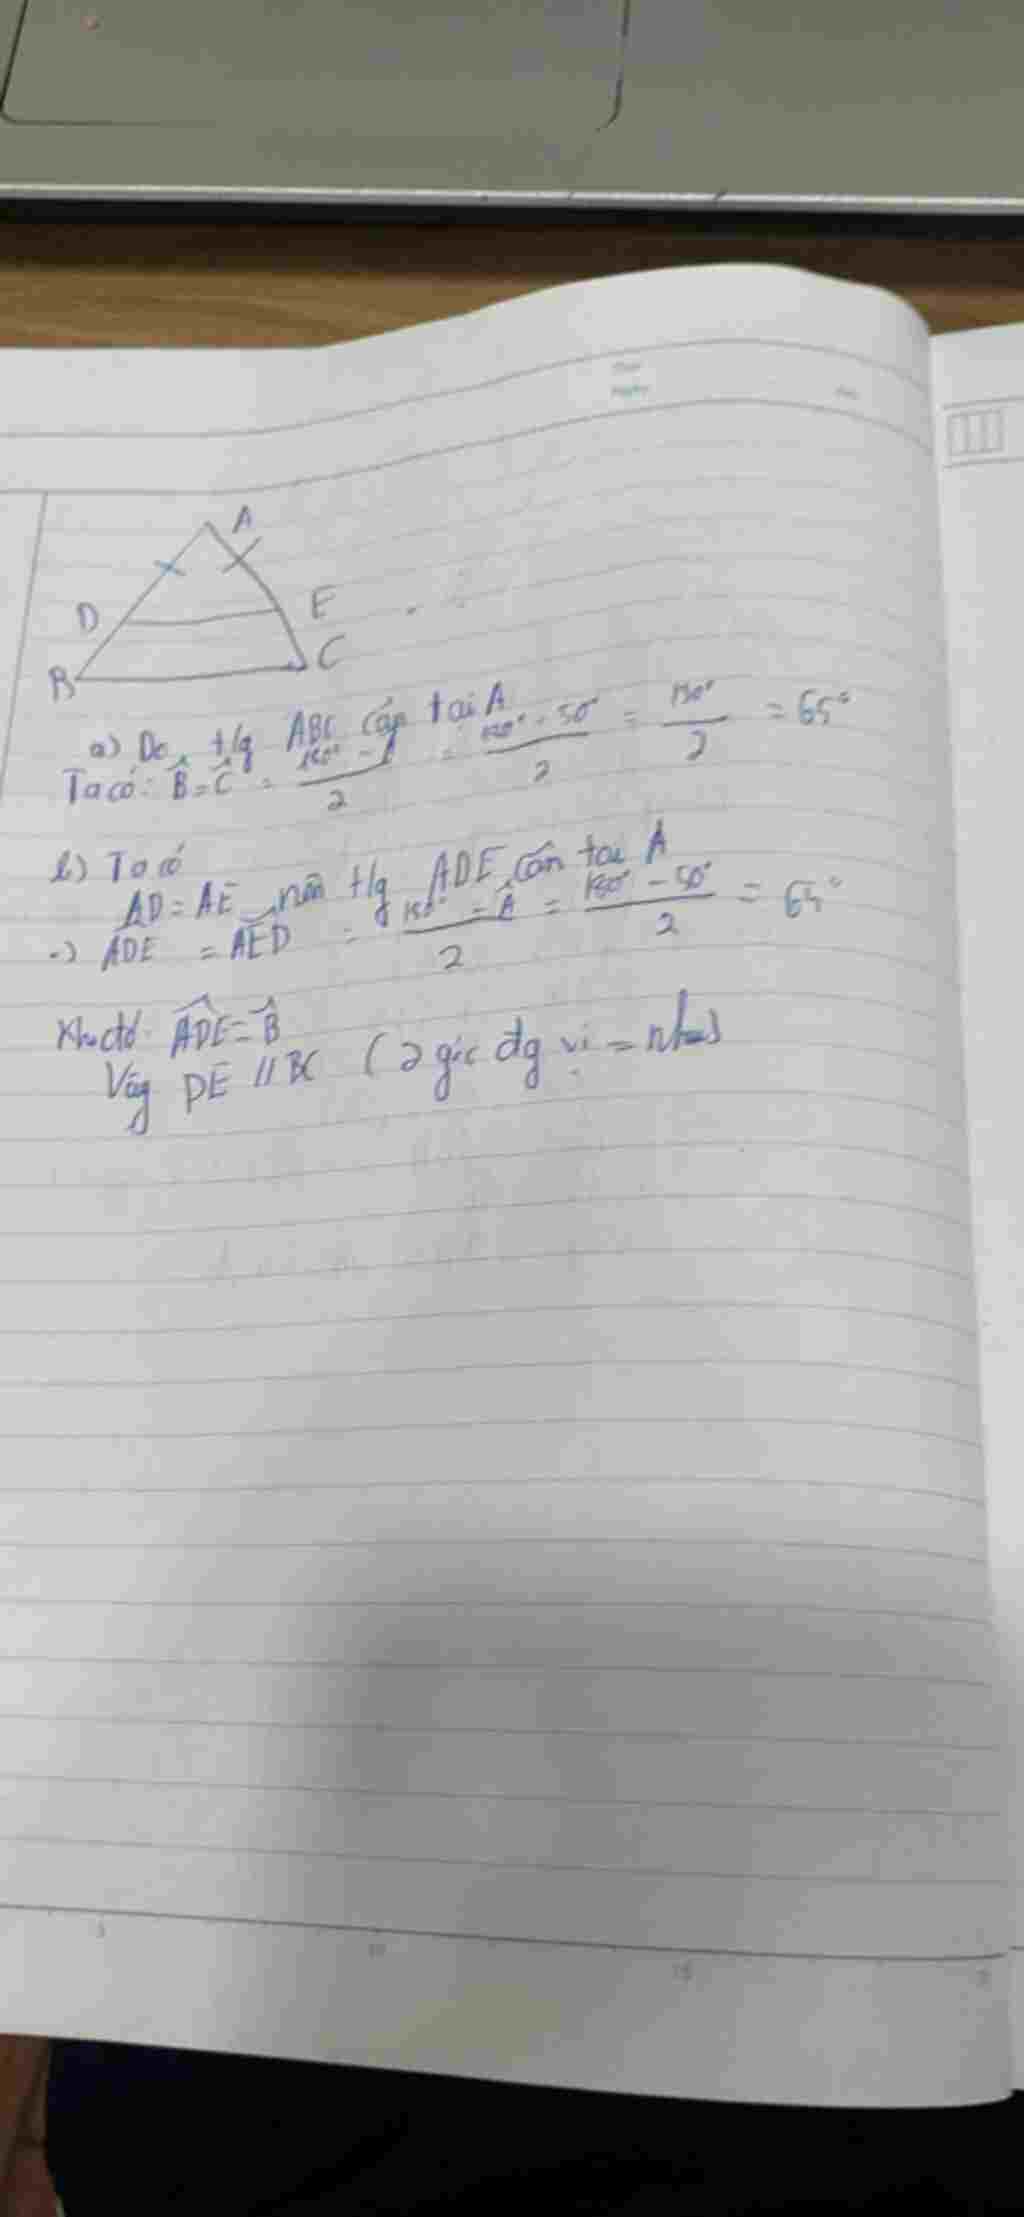 A
D
E
B
C
a) Do t/g ABC cân tại A
Ta có: B̂ = Ĉ = (180° - Â)/2 = (180° - 50°)/2 = 130°/2 = 65°
b) Ta có
AD = AE nên t/g ADE cân tại A
-> ADE = AED = (180° - Â)/2 = (180° - 50°)/2 = 65°
Khi đó ADE = B̂
Vậy DE // BC (2 góc đg vị = nhau)
5
10
15